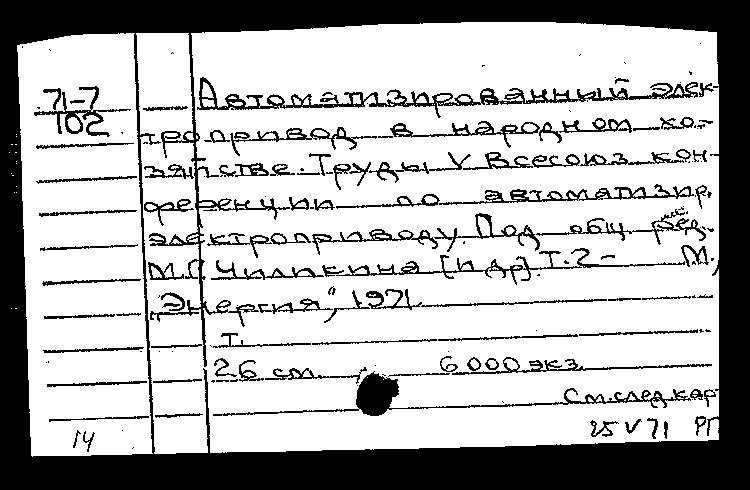 71-7
102
Автоматизированный элек-
тропривод в народном хо-
зяйстве. Труды V Всесоюз. кон-
ференции по автоматизир.
электроприводу. Под общ. ред.
М.Г. Чиликина [и др]. Т.2 - М.,
„Энергия", 1971.
т.
26 см. 6000 экз.
См. след. кар
14
25 V 71 РП